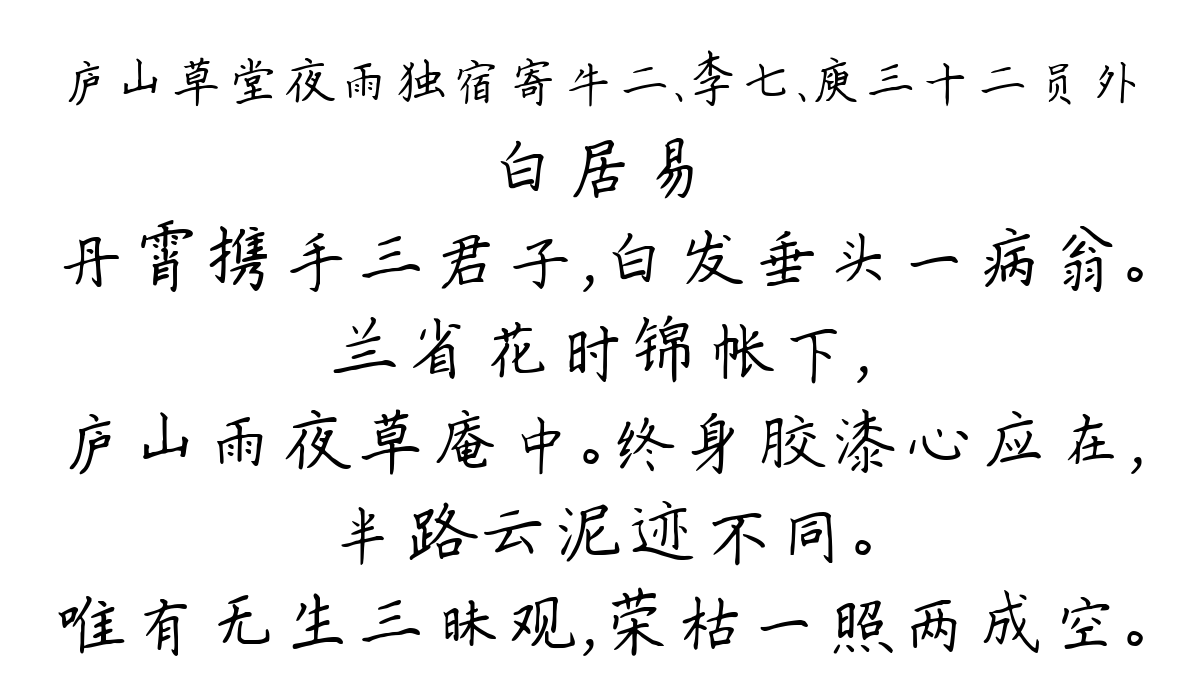 庐山草堂夜雨独宿寄牛二、李七、庾三十二员外
白居易
丹霄携手三君子,白发垂头一病翁。
兰省花时锦帐下,
庐山雨夜草庵中。终身胶漆心应在,
半路云泥迹不同。
唯有无生三昧观,荣枯一照两成空。